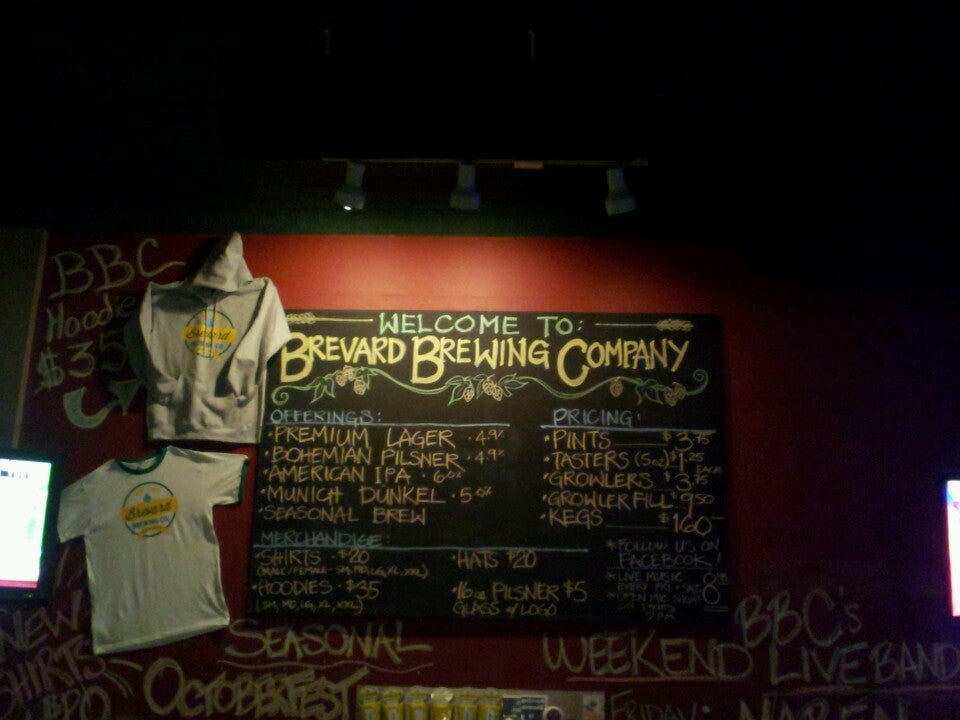 BBC
Hoodie
$35
Brevard
BREWING CO.
Brevard
BREWING CO.
WELCOME TO:
BREVARD BREWING COMPANY
OFFERINGS:
• PREMIUM LAGER • 4.9%
• BOHEMIAN PILSNER • 4.9%
• AMERICAN IPA • 6.0%
• MUNICH DUNKEL • 5.0%
• SEASONAL BREW
PRICING:
• PINTS $3.75
• TASTERS (5oz) $1.25 EACH
• GROWLERS $3.75
• GROWLER FILL $9.50
• KEGS $160
MERCHANDIGE:
• SHIRTS • $20
(MALE/FEMALE - SM, MD, LG, XL, XXL)
• HOODIES • $35
(SM, MD, LG, XL, XXL)
• HATS $20
• 16oz PILSNER $5
GLASS w/ LOGO
* FOLLOW US ON
FACEBOOK!
* LIVE MUSIC
EVERY FRI + SAT 8PM
* OPEN MIC NIGHT
NEW
SHIRTS
SEASONAL
OCTOBERFEST
BBC's
WEEKEND LIVE BAND
FRIDAY: